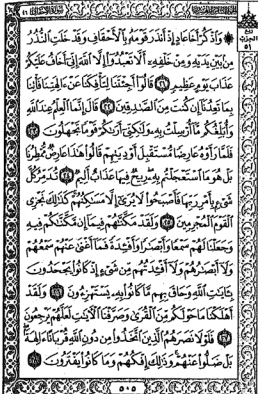 ۞ وَاذْكُرْ أَخَا عَادٍ إِذْ أَنذَرَ قَوْمَهُ بِالْأَحْقَافِ وَقَدْ خَلَتِ النُّذُرُ
مِن بَيْنِ يَدَيْهِ وَمِنْ خَلْفِهِ أَلَّا تَعْبُدُوا إِلَّا اللَّهَ إِنِّي أَخَافُ عَلَيْكُمْ
عَذَابَ يَوْمٍ عَظِيمٍ ﴿٢١﴾ قَالُوا أَجِئْتَنَا لِتَأْفِكَنَا عَنْ آلِهَتِنَا فَأْتِنَا
بِمَا تَعِدُنَا إِن كُنتَ مِنَ الصَّادِقِينَ ﴿٢٢﴾ قَالَ إِنَّمَا الْعِلْمُ عِندَ اللَّهِ
وَأُبَلِّغُكُم مَّا أُرْسِلْتُ بِهِ وَلَٰكِنِّي أَرَاكُمْ قَوْمًا تَجْهَلُونَ ﴿٢٣﴾
فَلَمَّا رَأَوْهُ عَارِضًا مُّسْتَقْبِلَ أَوْدِيَتِهِمْ قَالُوا هَٰذَا عَارِضٌ مُّمْطِرُنَا
بَلْ هُوَ مَا اسْتَعْجَلْتُم بِهِ رِيحٌ فِيهَا عَذَابٌ أَلِيمٌ ﴿٢٤﴾ تُدَمِّرُ كُلَّ
شَيْءٍ بِأَمْرِ رَبِّهَا فَأَصْبَحُوا لَا يُرَىٰ إِلَّا مَسَاكِنُهُمْ كَذَٰلِكَ نَجْزِي
الْقَوْمَ الْمُجْرِمِينَ ﴿٢٥﴾ وَلَقَدْ مَكَّنَّاهُمْ فِيمَا إِن مَّكَّنَّاكُمْ فِيهِ
وَجَعَلْنَا لَهُمْ سَمْعًا وَأَبْصَارًا وَأَفْئِدَةً فَمَا أَغْنَىٰ عَنْهُمْ سَمْعُهُمْ
وَلَا أَبْصَارُهُمْ وَلَا أَفْئِدَتُهُم مِّن شَيْءٍ إِذْ كَانُوا يَجْحَدُونَ
بِآيَاتِ اللَّهِ وَحَاقَ بِهِم مَّا كَانُوا بِهِ يَسْتَهْزِئُونَ ﴿٢٦﴾ وَلَقَدْ
أَهْلَكْنَا مَا حَوْلَكُم مِّنَ الْقُرَىٰ وَصَرَّفْنَا الْآيَاتِ لَعَلَّهُمْ يَرْجِعُونَ
﴿٢٧﴾ فَلَوْلَا نَصَرَهُمُ الَّذِينَ اتَّخَذُوا مِن دُونِ اللَّهِ قُرْبَانًا آلِهَةً
بَلْ ضَلُّوا عَنْهُمْ وَذَٰلِكَ إِفْكُهُمْ وَمَا كَانُوا يَفْتَرُونَ ﴿٢٨﴾
ربع
الحزب
٥١
٥٠٥